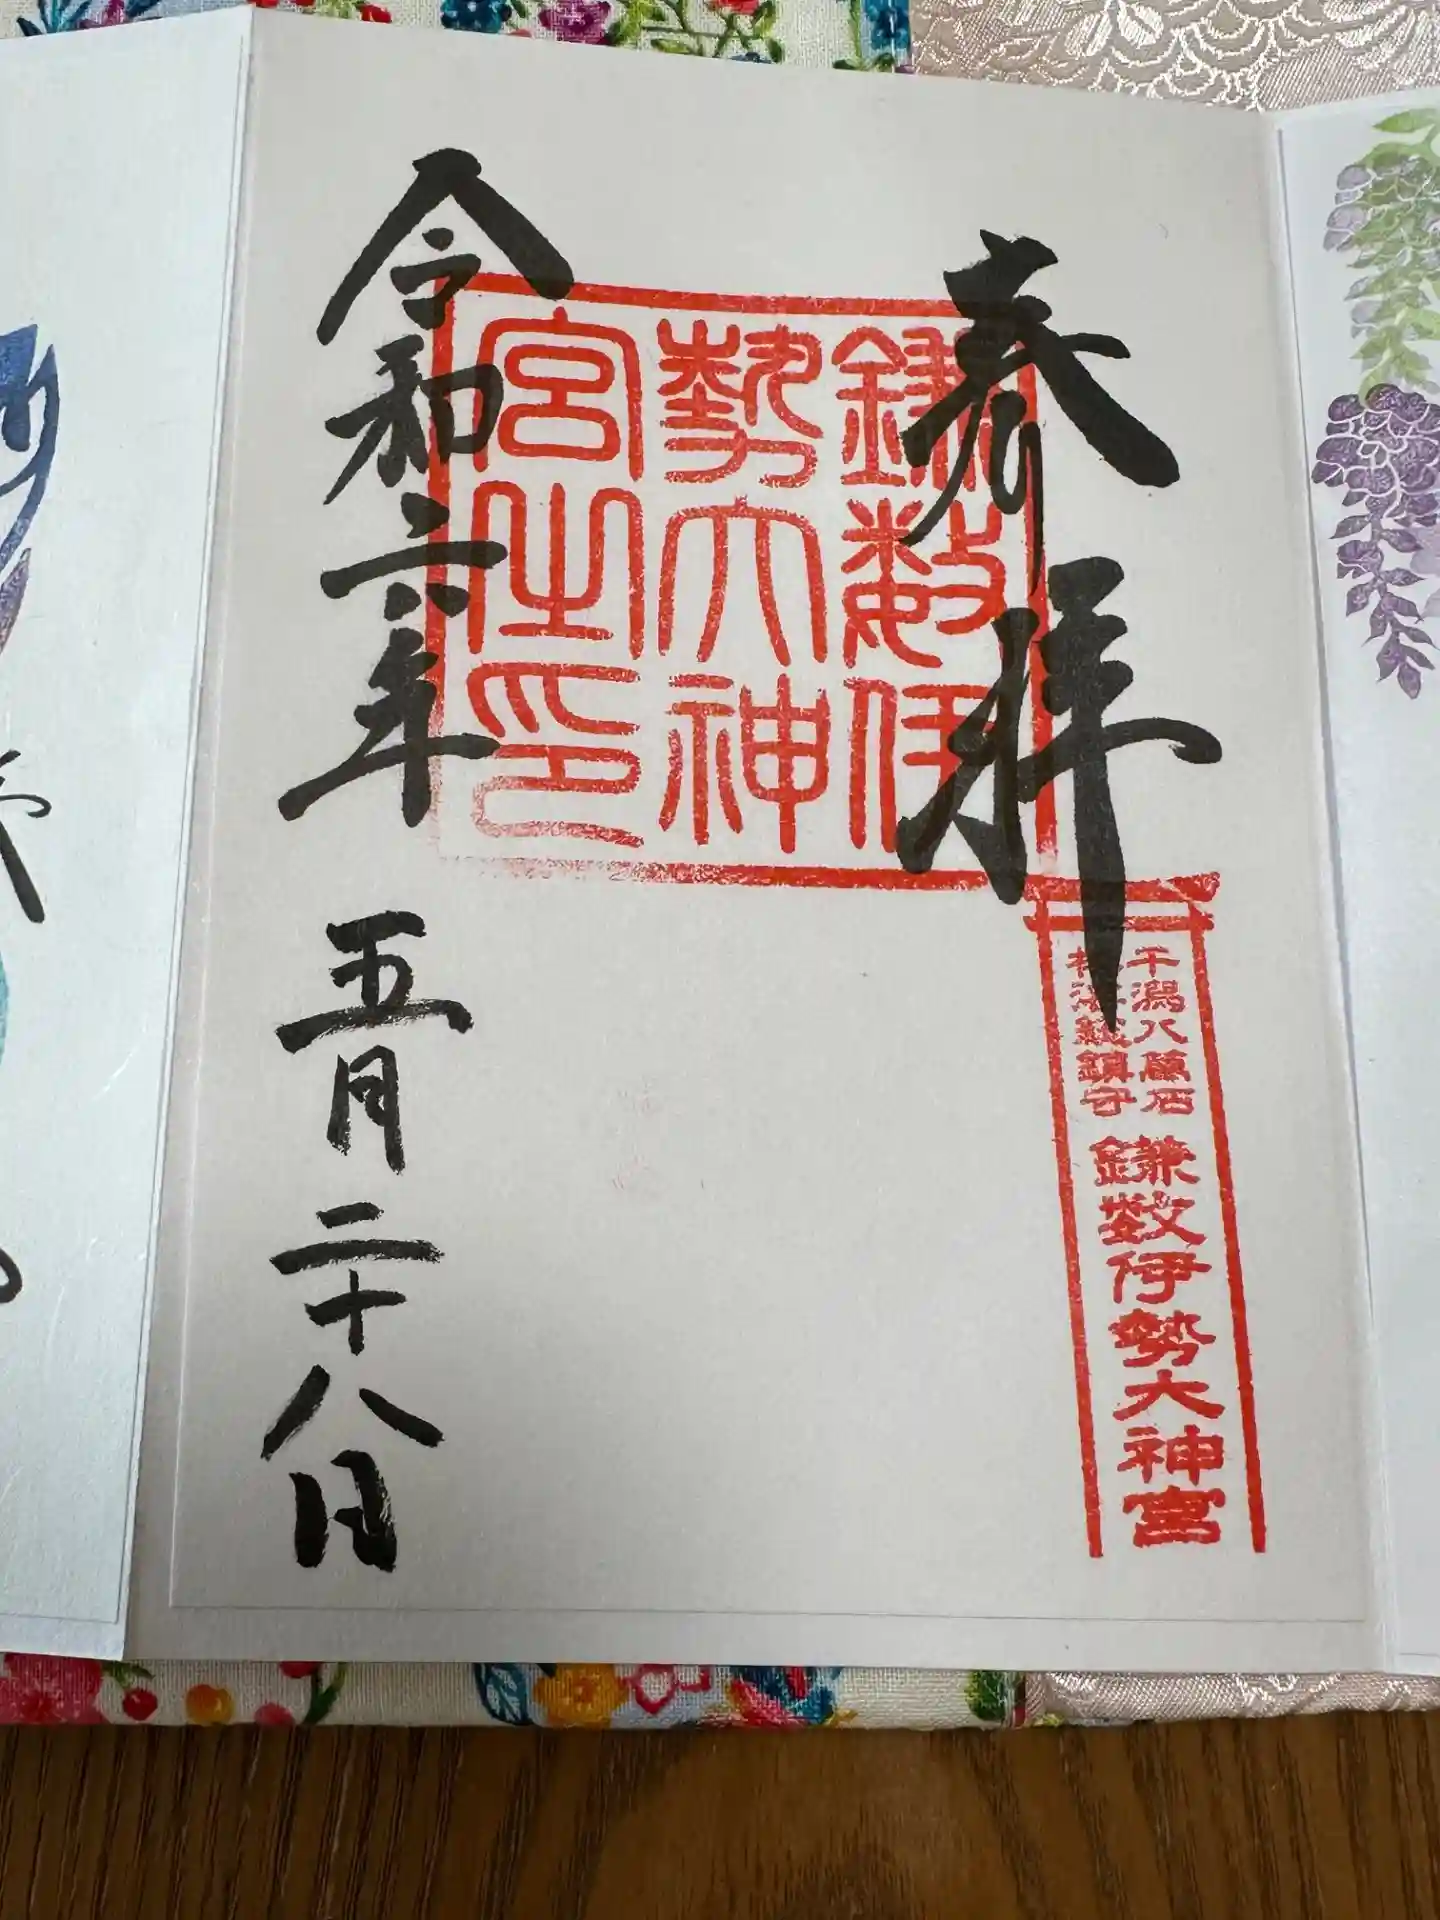 奉拝
鎌数伊
勢大神
宮之印
干潟八萬石
鎮守
鎌数伊勢大神宮
令和六年 五月二十八日